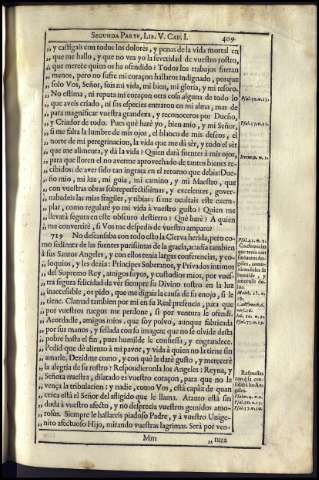 SEGUNDA PARTE, LIB. V. CAP. I. 409
„ y castigais con todos los dolores, y penas de la vida mortal en
„ que me hallo, y que no vea yo la serenidad de vuestro rostro,
„ que merece quien os ha ofendido? Todos los trabajos fueran
„ menos, pero no sufre mi coraçon hallaros indignado, porque
„ solo Vos, Señor, sois mi vida, mi bien, mi gloria, y mi tesoro.
„ No estima, ni reputa mi coraçon otra cosa alguna de todo lo
„ que aveis criado, ni sus especies entraron en mi alma, mas de
„ para magnificar vuestra grandeza, y reconoceros por Dueño,
„ y Criador de todo. Pues què harè yo, bien mio, y mi Señor,
„ si me falta la lumbre de mis ojos, el blanco de mis deseos, el
„ norte de mi peregrinacion, la vida que me dà sèr, y todo el sèr
„ que me alimenta, y dà la vida? Quien darà fuentes à mis ojos,
„ para que lloren el no averme aprovechado de tantos bienes re-
„ cibidos; de aver sido tan ingrata en el retorno que debia? Due-
„ ño mio, mi luz, mi guia, mi camino, y mi Maestro, que
„ con vuestras obras sobreperfectissimas, y excelentes, gover-
„ nabades las mias fragiles, y tibias; si me ocultais este exem-
„ plar, como regularè yo mi vida à vuestro gusto? Quien me
„ llevarà segura en este obscuro destierro? Què harè? A quien
„ me convertirè, si Vos me despedis de vuestro amparo?
729 No descansaba con todo esto la Cierva herida, pero co-
mo sedienta de las fuentes purissimas de la gracia, acudia tambien
à sus Santos Angeles, y con ellos tenia largas conferencias, y co-
„ loquios, y les dezia: Principes Soberanos, y Privados intimos
„ del Supremo Rey, amigos suyos, y custodios mios, por vues-
„ tra segura felicidad de vèr siempre su Divino rostro en la luz
„ inaccessible, os pido, que me digais la causa de su enojo, si le
„ tiene. Clamad tambien por mi en su Real presencia, para que
„ por vuestros ruegos me perdone, si por ventura le ofendi.
„ Acordadle, amigos mios, que soy polvo, aunque fabricada
„ por sus manos, y sellada con su imagen; que no se olvide desta
„ pobre hasta el fin, pues humilde le confiessa, y engrandece.
„ Pedid que dè aliento à mi pavor, y vida à quien no la tiene sin
„ amarle. Dezidme como, y con què le darè gusto, y merecerè
„ la alegria de su rostro? Respondieronla los Angeles: Reyna, y
„ Señora nuestra, dilatado es vuestro coraçon, para que no le
„ vença la tribulacion; y nadie, como Vos, està capàz de quan
„ cerca està el Señor del afligido que le llama. Atento està sin
„ duda à vuestro afecto, y no desprecia vuestros gemidos amo-
„ rosos. Siempre le hallareis piadoso Padre, y à vuestro Unige-
„ nito afectuoso Hijo, mirando vuestras lagrimas. Serà por ven-
Mm „ tura